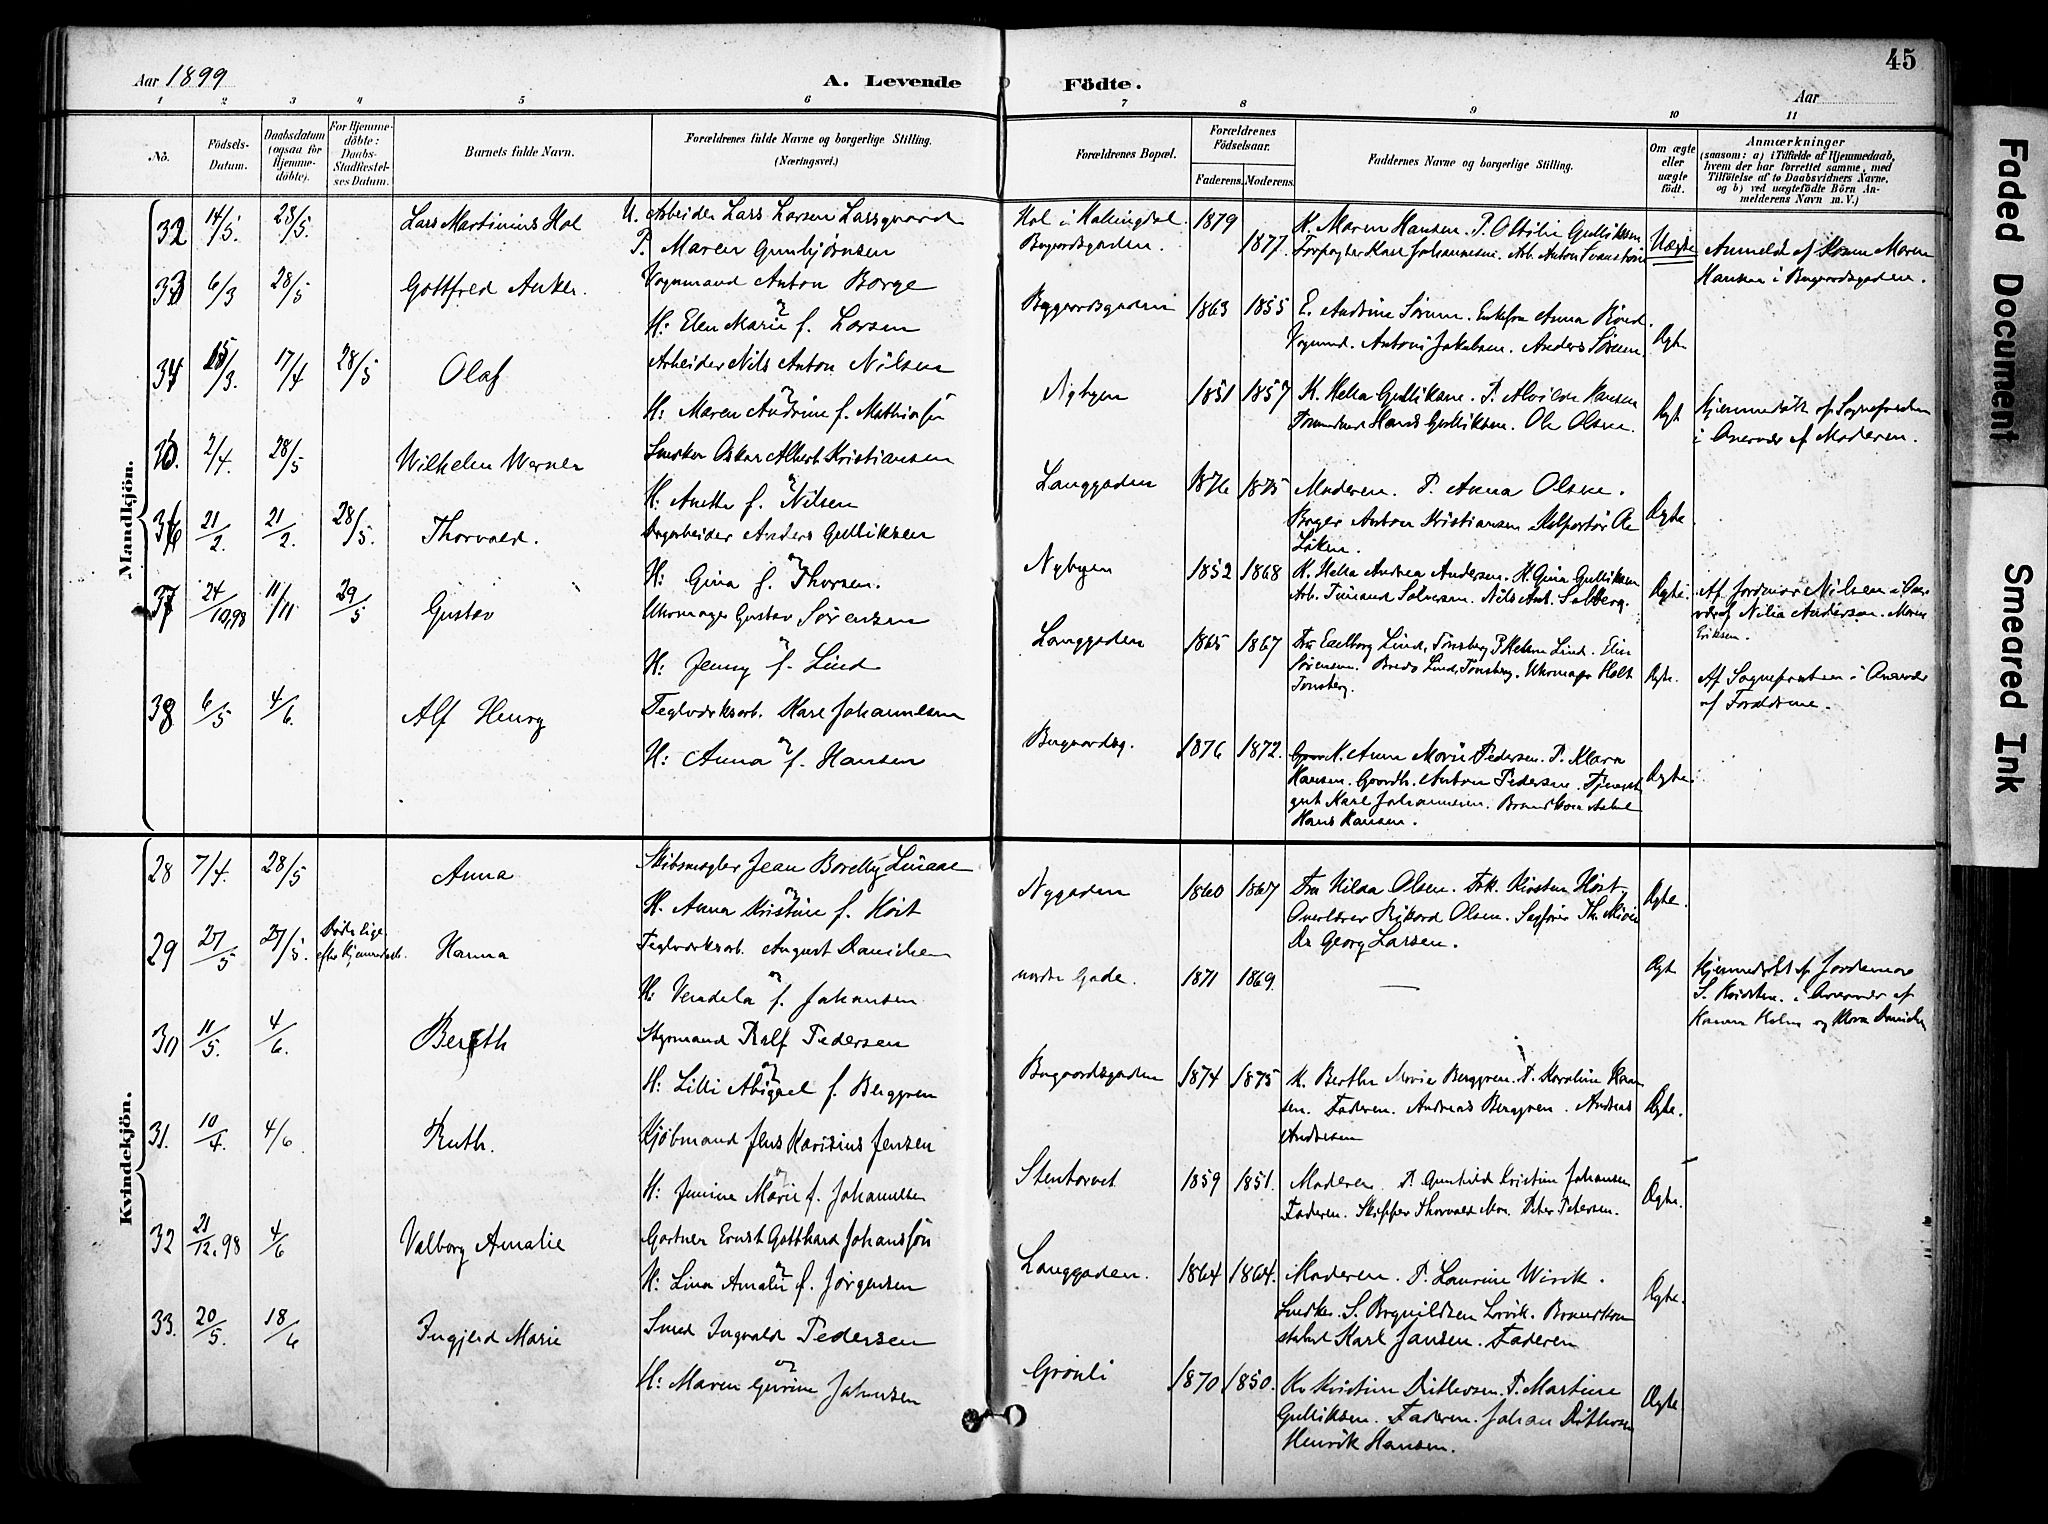 45
Aar 1899
A. Levende
Födte.
Aar
1 2 3 4 5 6 7 8 9 10 11
No.
Födsels-Datum.
Daabsdatum (ogsaa for Hjemme-döbte).
For Hjemme-döbte: Daabs-Stadfæstel-ses Datum.
Barnets fulde Navn.
Forældrenes fulde Navne og borgerlige Stilling. (Næringsvei.)
Forældrenes Bopæl.
Forældrenes Födselsaar.
Faderens. Moderens.
Faddernes Navne og borgerlige Stilling.
Om ægte eller uægte födt.
Anmærkninger
(saasom: a) i Tilfælde af Hjemmedaab, hvem der har forrettet samme, med Tilföielse af to Daabsvidners Navne. og b) ved uægtefödte Börn An-melderens Navn m. V.)
Mandkjön.
32 14/5. 28/5. Lars Martinius Hol
U. Arbeider Lars Larsen Larsgaard
P. Maren Gunbjørnsen
Hol i Hallingdal.
Bugaardsgaden.
1879 1877.
K. Maren Hansen. P. Ottilie Gulliksen
Forpagter Karl Johannesen. Arb. Anton Svendsen
Uægte
Anmeldt af Konen Maren
Hansen i Bugaardsgaden.
33 6/3 28/5 Gottfred Anker.
Vognmand Anton Borge
og
H: Elen Marie f. Larsen
Byggaardsgaden 1863 1855
E. Andrine Sørum. Enkefru Anna
Vognmd. Anton Jakobsen. Anders Sørum.
Ægte
34 15/3. 17/4 28/5 Olaf
Arbeider Nils Anton Nilsen
og
H: Maren Andrine f. Mathiasen
Nybyen 1851 1857
K. Hella Gulliksen. P. Hansen
Tømmermd Hans Gulliksen. Ole Olsen.
Ægte
Hjemmedøbt af Sognepresten
i Overvær af Moderen.
35. 2/4. 28/5 Wilhelm Werner
Snedker Oskar Albert Kristiansen
og
H: Anette f. Nilsen
Langgaden 1876 1875
Moderen. P. Anna Olsen.
Bager Anton Kristiansen Kolportør
Løken.
Ægte
36 21/2. 21/2. 28/5. Thorvald.
Dagarbeider Anders Gulliksen
og
H: Gina f. Thorsen.
Nybyen 1852 1868
K. Hella Andrea Andersen. K. Gina Gulliksen
Arb. Salvesen. Nils Ant. Solberg.
Ægte.
Af Jordmor Nilsen i Over-
vær af Nilia Anderson. Maren
Eriksen.
37 24/10,98 11/11 29/5 Gustav
Uhrmager Gustav Sørensen
og
H: Jenny f. Lind
Langgaden 1865 1867
Fru Lind, Tønsberg P. Helena Lind. Elin
Sørensen. Lind, Tønsberg. Uhrmager Holt
Tønsberg.
Ægte.
Af Sognepresten i Overvær
af Forældrene.
38 6/5 4/6. Alf Henry
Teglværksarb. Karl Johannesen
og
H: Anna f. Hansen
Bugaardsg. 1876 1872.
K. Anna Marie Pedersen. P. Klara
Hansen. Gaardbr. Anton Pedersen. Tjeneste-
gut Karl Johannesen. Brandkonstabel
Hans Hansen.
Ægte
Kvindekjön.
28 7/4. 28/5 Anna
Skibsmægler Jean Linaae
og
H. Anna Kristine f. Høst
Nygaden 1860 1867
Fru Hilda Olsen. Frk. Kirsten Høst.
Overlærer Rikard Olsen. Sagfører Th.
Dr Georg Larsen.
Ægte.
29 27/5 27/5. Døde lige
efter Hjemmedaab. Hanna
Teglværksarb. August Danielsen
og
H: Vendela f. Johansen
nordre Gade. 1871 1869.
Ægte
Hjemmedøbt af Jordemor
S. Kvidsten. i Overvær af
Hanna Holm og Klara Danielsen
30 11/5. 4/6. Bereth
Styrmand Ralf Pedersen
og
H: Lilli Abigael f. Berggren
Bugaardsgaden 1874 1875
K. Berthe Marie Berggren. P. Karoline Han-
sen. Faderen. Andreas Berggren. Andreas
Andresen
Ægte.
31. 10/4. 4/6 Ruth.
Kjøbmand Jens Karisius Jensen
og
H: Jenine Marie f. Johannesen
Stentorvet 1859 1851.
Moderen. P. Gunhild Kristine Johansen
Faderen. Skipper Thorvald Moe. Peter Petersen.
Ægte.
32 21/12.98 4/6 Valborg Amalie
Gartner Ernst Gotthard Johansson
og
H: Lina Amalie f. Jørgensen
Langgaden. 1864 1864.
Moderen. P. Laurine Wirik.
Snedker. S. Bognildsen Larvik. Brandkon-
stabel Karl Jansen. Faderen
Ægte.
33. 20/5. 18/6 Ingjerd Marie
Smed Ingvald Pedersen
og
H: Maren Gurine Johansen
Grønli 1870 1850.
Kv Kristine Ditlevsen. P. Martine
Gulliksen. Faderen. Johan Ditlevsen
Henrik Hansen.
Ægte.
Faded Document
Smeared Ink